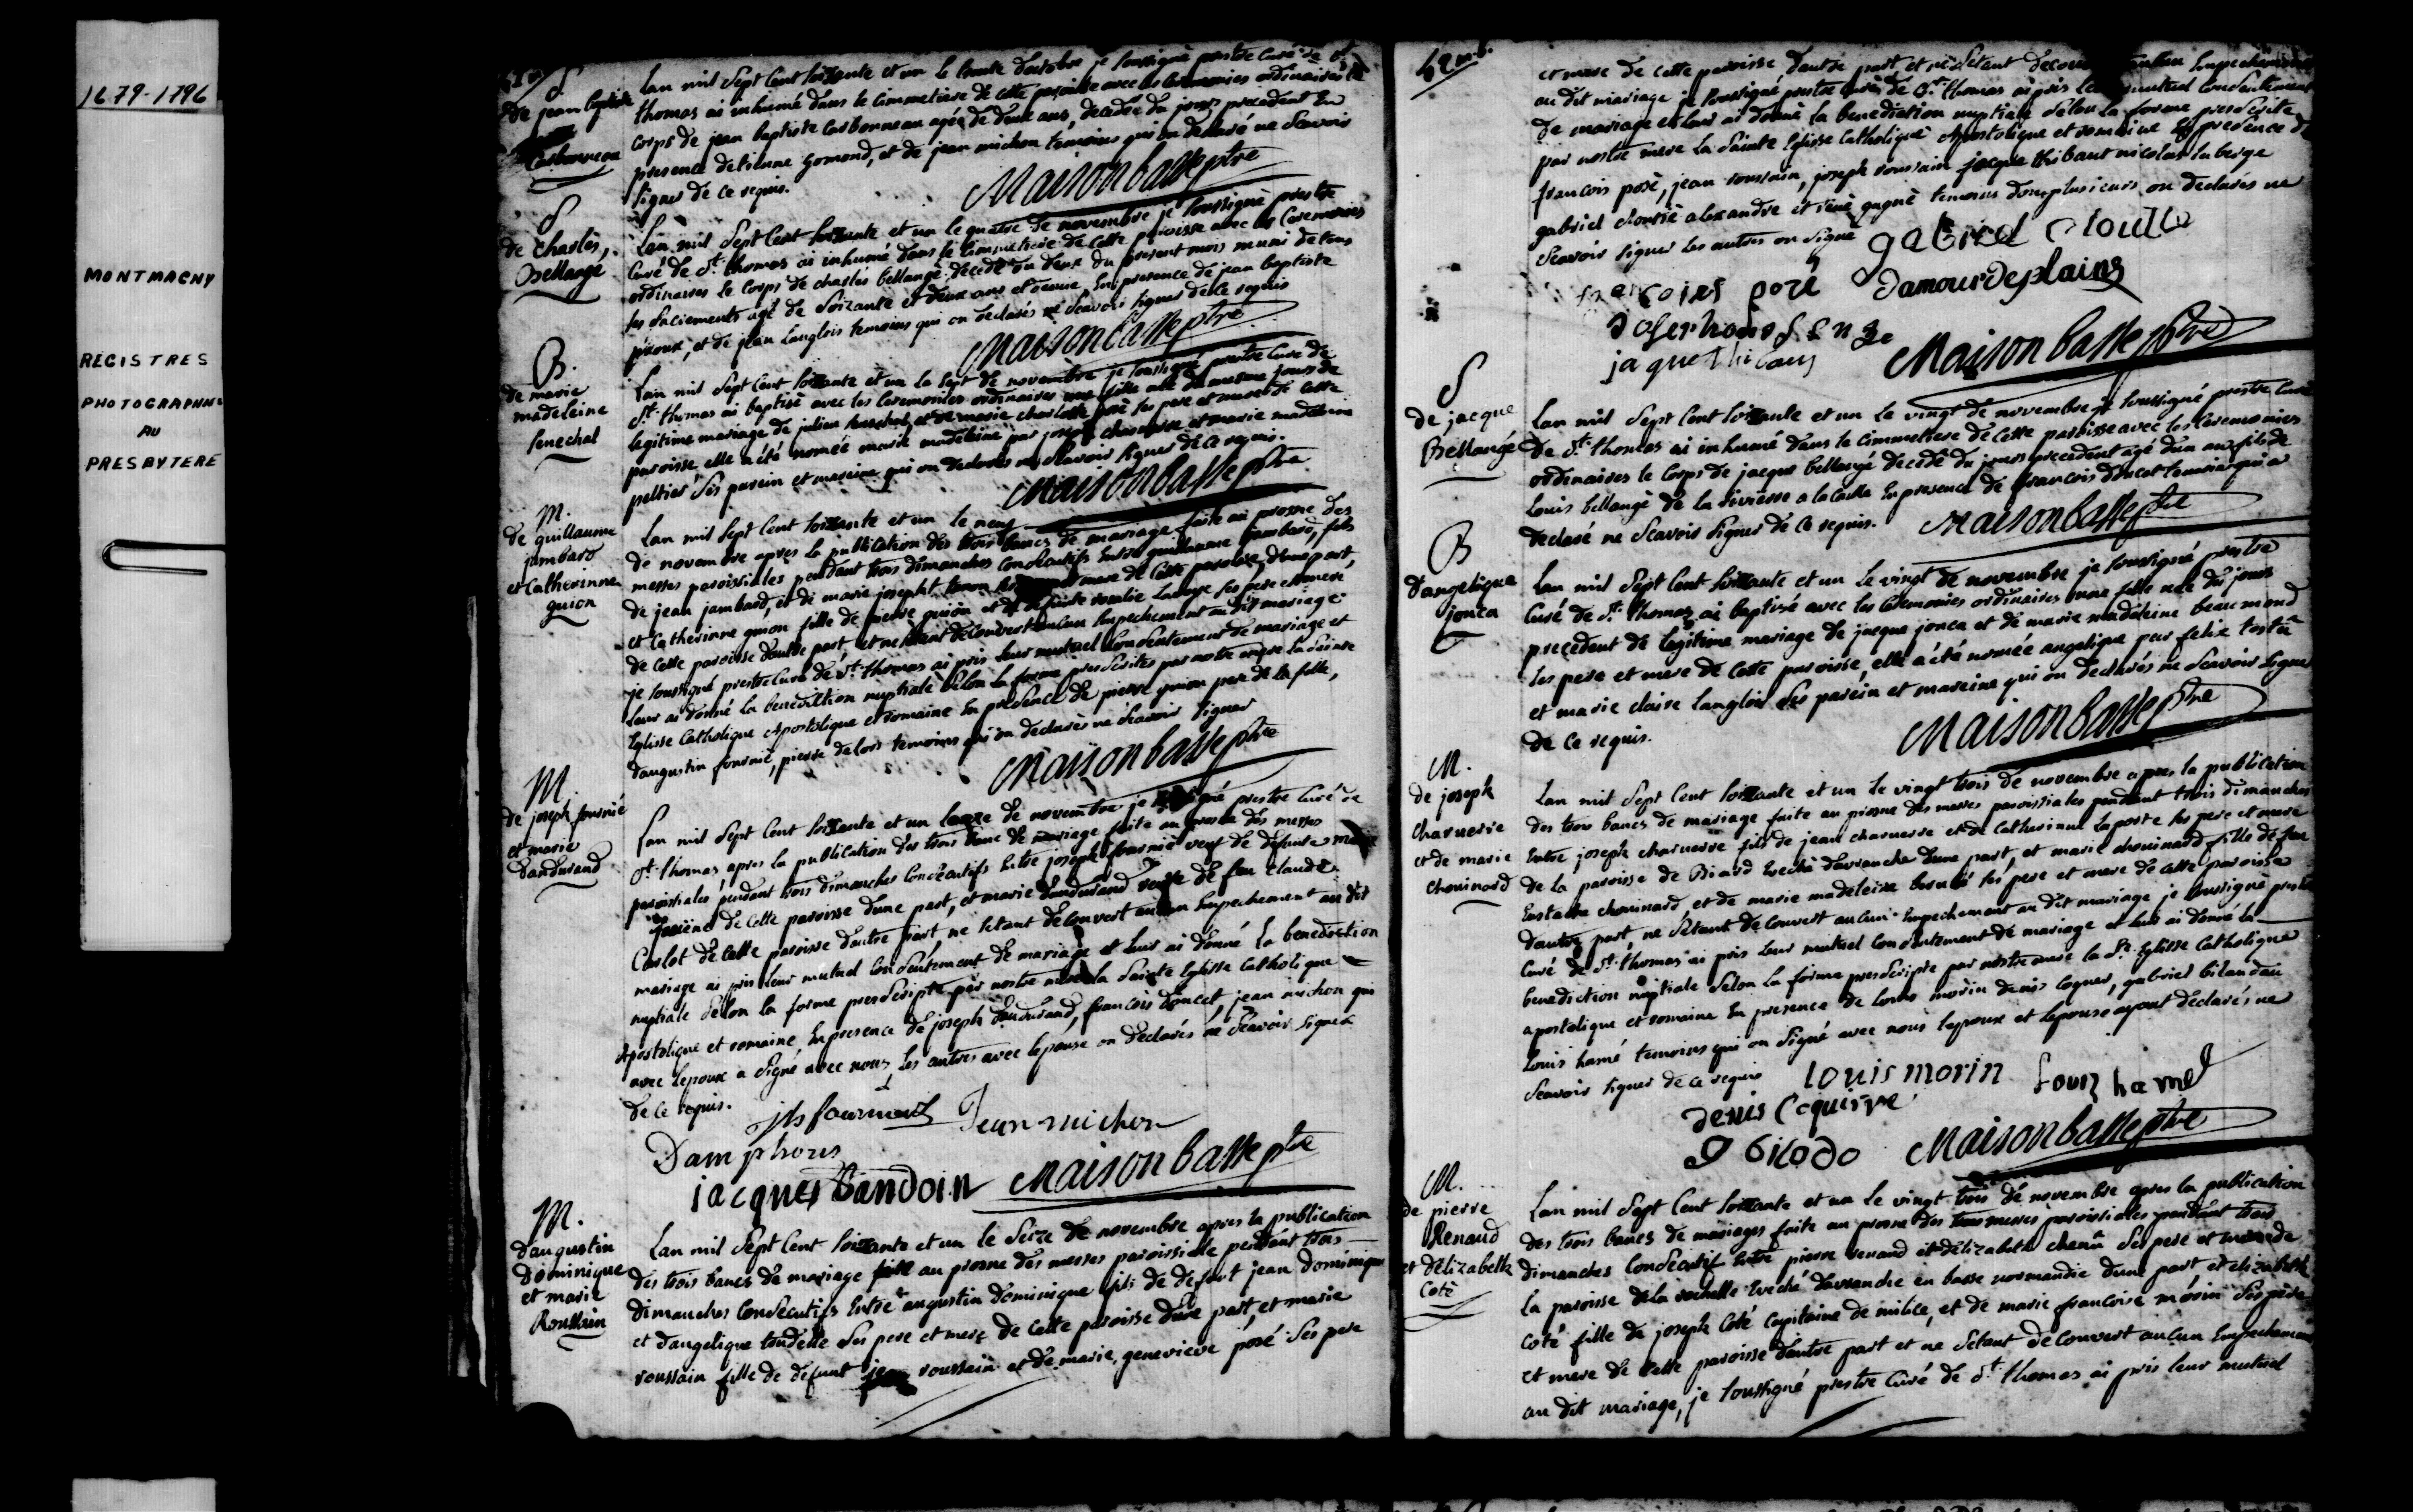 1679-1796
MONTMAGNY
REGISTRES
PHOTOGRAPHIÉS
AU
PRESBYTERE
S
de jean baptiste
Carbonneau
Lan mil Sept Cent soixante et un le trente doctobre je soussigné prestre Curé de St
thomas ai inhumé dans le Cimmetiere de cette paroisse avec les Ceremonies ordinaires le
corps de jean baptiste Carbonneau agée de deux ans, decedée du jours precedent En
presence detienne gomond, et de jean michon temoins qui on declaré ne Scavoir
signer de ce requis.
Maisonbasse ptre
S
de Charles,
Bellange
Lan mil Sept Cent soixante et un le quatre de novembre je soussigné prestre
Curé de St thomas ai inhumé dans le Cimmetiere de cette paroisse avec les Ceremonies
ordinaires le Corps de charles bellangé decedé du deux du present mois muni de tous
ses Sacrements agé de Soixante et deux ans et demie En presence de jean baptiste
proux, et de jean Langlois temoins qui on declarés ne Scavoir signer de ce requis
Maisonbasse ptre
B.
de marie
madeleine
senechal
Lan mil Sept Cent soixante et un le sept de novembre je soussigné prestre Curé de
St thomas ai baptisé avec les Ceremonies ordinaires une fille née du mesme jours de
legitime mariage de julien senechal et de marie charlotte posé ses pere et mere de cette
paroisse elle a été nomée marie madeleine par joseph et marie madeleine
peltier ses parein et mareine qui on declarés ne Scavoir signer de ce requis.
Maisonbasse ptre
M.
de guillaume
jambard
et Catherinne
guion
Lan mil Sept Cent soixante et un le neuf
de novembre apres la publication des trois bancs de mariage faite au prosne des
messes paroissiales pendant trois dimanches Consecutifs Entre guillaume jambard, fils
de jean jambard, et de marie josepht mere de cette paroisse dune part,
et Catherinne guion fille de pierre guion et de defunte rosalie Laberge ses pere et mere
de cette paroisse dautre part, et ne setant decouvert aucun Empechement au dit mariage
je soussigné prestre Curé de St thomas ai pris leur mutuel Consentement de mariage et
leur ai donné la benediction nuptiale selon la forme prescrites par nostre mere la Sainte
Eglise Catholique Apostolique et romaine En presence de pierre guion pere de la fille,
daugustin fournié, pierre delors temoins qui on declarés ne Scavoir signer
Maisonbasse ptre
M.
de joseph fournié
et marie
dandurand
Lan mil Sept Cent soixante et un le de novembre je soussigné prestre Curé de
St thomas apres la publication des trois banc de mariage faite au prosne des messes
paroissiales pendant trois dimanches Consecutifs Entre joseph fournié veuf de defunte
de cette paroisse dune part, et marie dandurand veuve de feu claude
Carlot de cette paroisse dautre part, ne setant decouvert aucun Empechement au dit
mariage ai pris leur mutuel Consentement de mariage et leur ai donné la benediction
nuptiale selon la forme prescripte par nostre mere la Sainte Eglise Catholique
Apostolique et romaine En presence de joseph dandurand, francois doucet, jean michon qui
avec lepoux a signé avec nous, les autres avec lepouse on declarés ne Scavoir signer
de ce requis.
jean michon
Damphous
jacques Baudoin
Maisonbasse ptre
M.
daugustin
Dominique
et marie
Roussain
Lan mil Sept Cent soixante et un le Seize de novembre apres la publication
des trois bancs de mariage faite au prosne des messes paroissiale pendant trois
dimanches Consecutifs Entre augustin dominique fils de defunt jean dominique
et dangelique ses pere et mere de cette paroisse dune part, et marie
roussain fille de defunt jean roussain et de marie, genevieve posé ses pere
et mere de cette paroisse, dautre part et ne setant Empechement
au dit mariage je soussigné prestre Curé de St thomas ai pris leur mutuel Consentement
de mariage et leur ai donné la benediction nuptiale selon la forme prescrite
par nostre mere la Sainte Eglise Catholique Apostolique et romaine En presence de
francois posé, jean roussain, joseph roussain jacque thibaut nicolas laberge
gabriel cloutié alexandre et réné gagné temoins dom plusieurs on declarés ne
Scavoir signer les autres on signé
gabriel cloutie
francoies posé
damour deplains
jaque thibaus
Maisonbasse ptre
S
de jacque
Bellangé
Lan mil Sept Cent soixante et un le vingt de novembre je soussigné prestre Curé
de St thomas ai inhumé dans le Cimmetiere de cette paroisse avec les Ceremonies
ordinaires le Corps de jacque bellangé decedé du jours precedent agé dun an fils de
Louis bellangé de la riviere a la Caille En presence de francois doucet temoin qui a
declaré ne Scavoir signer de ce requis.
Maisonbasse ptre
B
d'angelique
jonca
Lan mil Sept Cent soixante et un le vingt de novembre je soussigné prestre
Curé de St thomas ai baptisé avec les Ceremonies ordinaires une fille née du jours
precedent de legitime mariage de jacque jonca et de marie madeleine beaumond
ses pere et mere de cette paroisse, elle a été nomée angelique par felix
et marie claire langlois ses parein et mareine qui on declarés ne Scavoir signer
de ce requis.
Maisonbasse ptre
M.
de joseph
charuerie
et de marie
chouinard
Lan mil Sept Cent soixante et un le vingt trois de novembre apres la publication
des trois bancs de mariage faite au prosne des messes paroissiales pendant trois dimanches
Entre joseph charuerie fils de jean charuerie et de Catherinne Laporte ses pere et mere
de la paroisse de Biard Eveché davranche dune part, et marie chouinard fille de feu
Eustache chouinard et de marie madeleine ses pere et mere de cette paroisse
dautre part, ne Setant decouvert aucun Empechement au dit mariage je soussigné prestre
Curé de St thomas ai pris leur mutuel Consentement de mariage et leur ai donné la
benediction nuptiale selon la forme prescripte par nostre mere la Ste Eglise Catholique
apostolique et romaine En presence de louis morin denis coquer, gabriel bilaudau
Louis hamé temoins qui on signé avec nous lepoux et lepouse ayant declarés ne
Scavoir signer de ce requis
louis morin
Louis hamel
denis Coquerre
g bilodo
Maisonbasse ptre
M.
de pierre
Renaud
et d'Elizabelk
Coté
Lan mil Sept Cent soixante et un le vingt trois de novembre apres la publication
des trois bancs de mariages faite au prosne des messes paroissiales pendant trois
dimanches Consecutif Entre pierre renaud et delizabeth ses pere et mere de
la paroisse de la rochelle Eveché davranche en basse normandie dune part et elizabeth
coté fille de joseph Coté Capitaine de milice, et de marie francoise morin ses pere
et mere de cette paroisse dautre part et ne Setant decouvert aucun Empechement
au dit mariage, je soussigné prestre Curé de St thomas ai pris leur mutuel